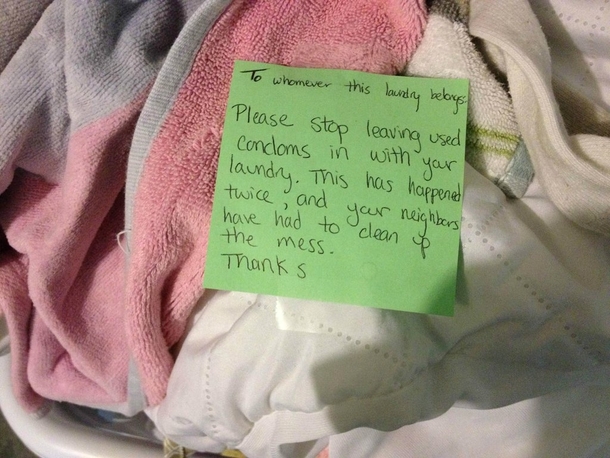 To whomever this laundry belongs:
Please stop leaving used
condoms in with your
laundry. This has happened
twice, and your neighbors
have had to clean up
the mess.
Thanks